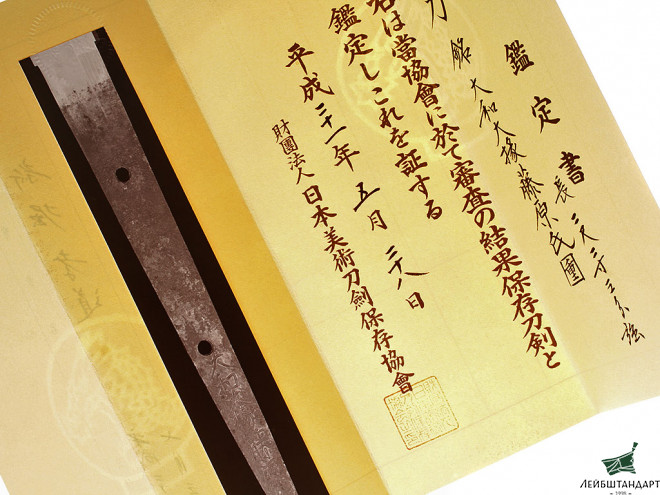 鑑定書
刀 銘 大和大掾藤原氏重
長 二尺二寸三分強
右は當協會に於て審査の結果保存刀剣と
鑑定しこれを証する
平成二十一年五月二十八日
財團法人 日本美術刀劍保存協會
ЛЕЙБШТАНДАРТ
1998